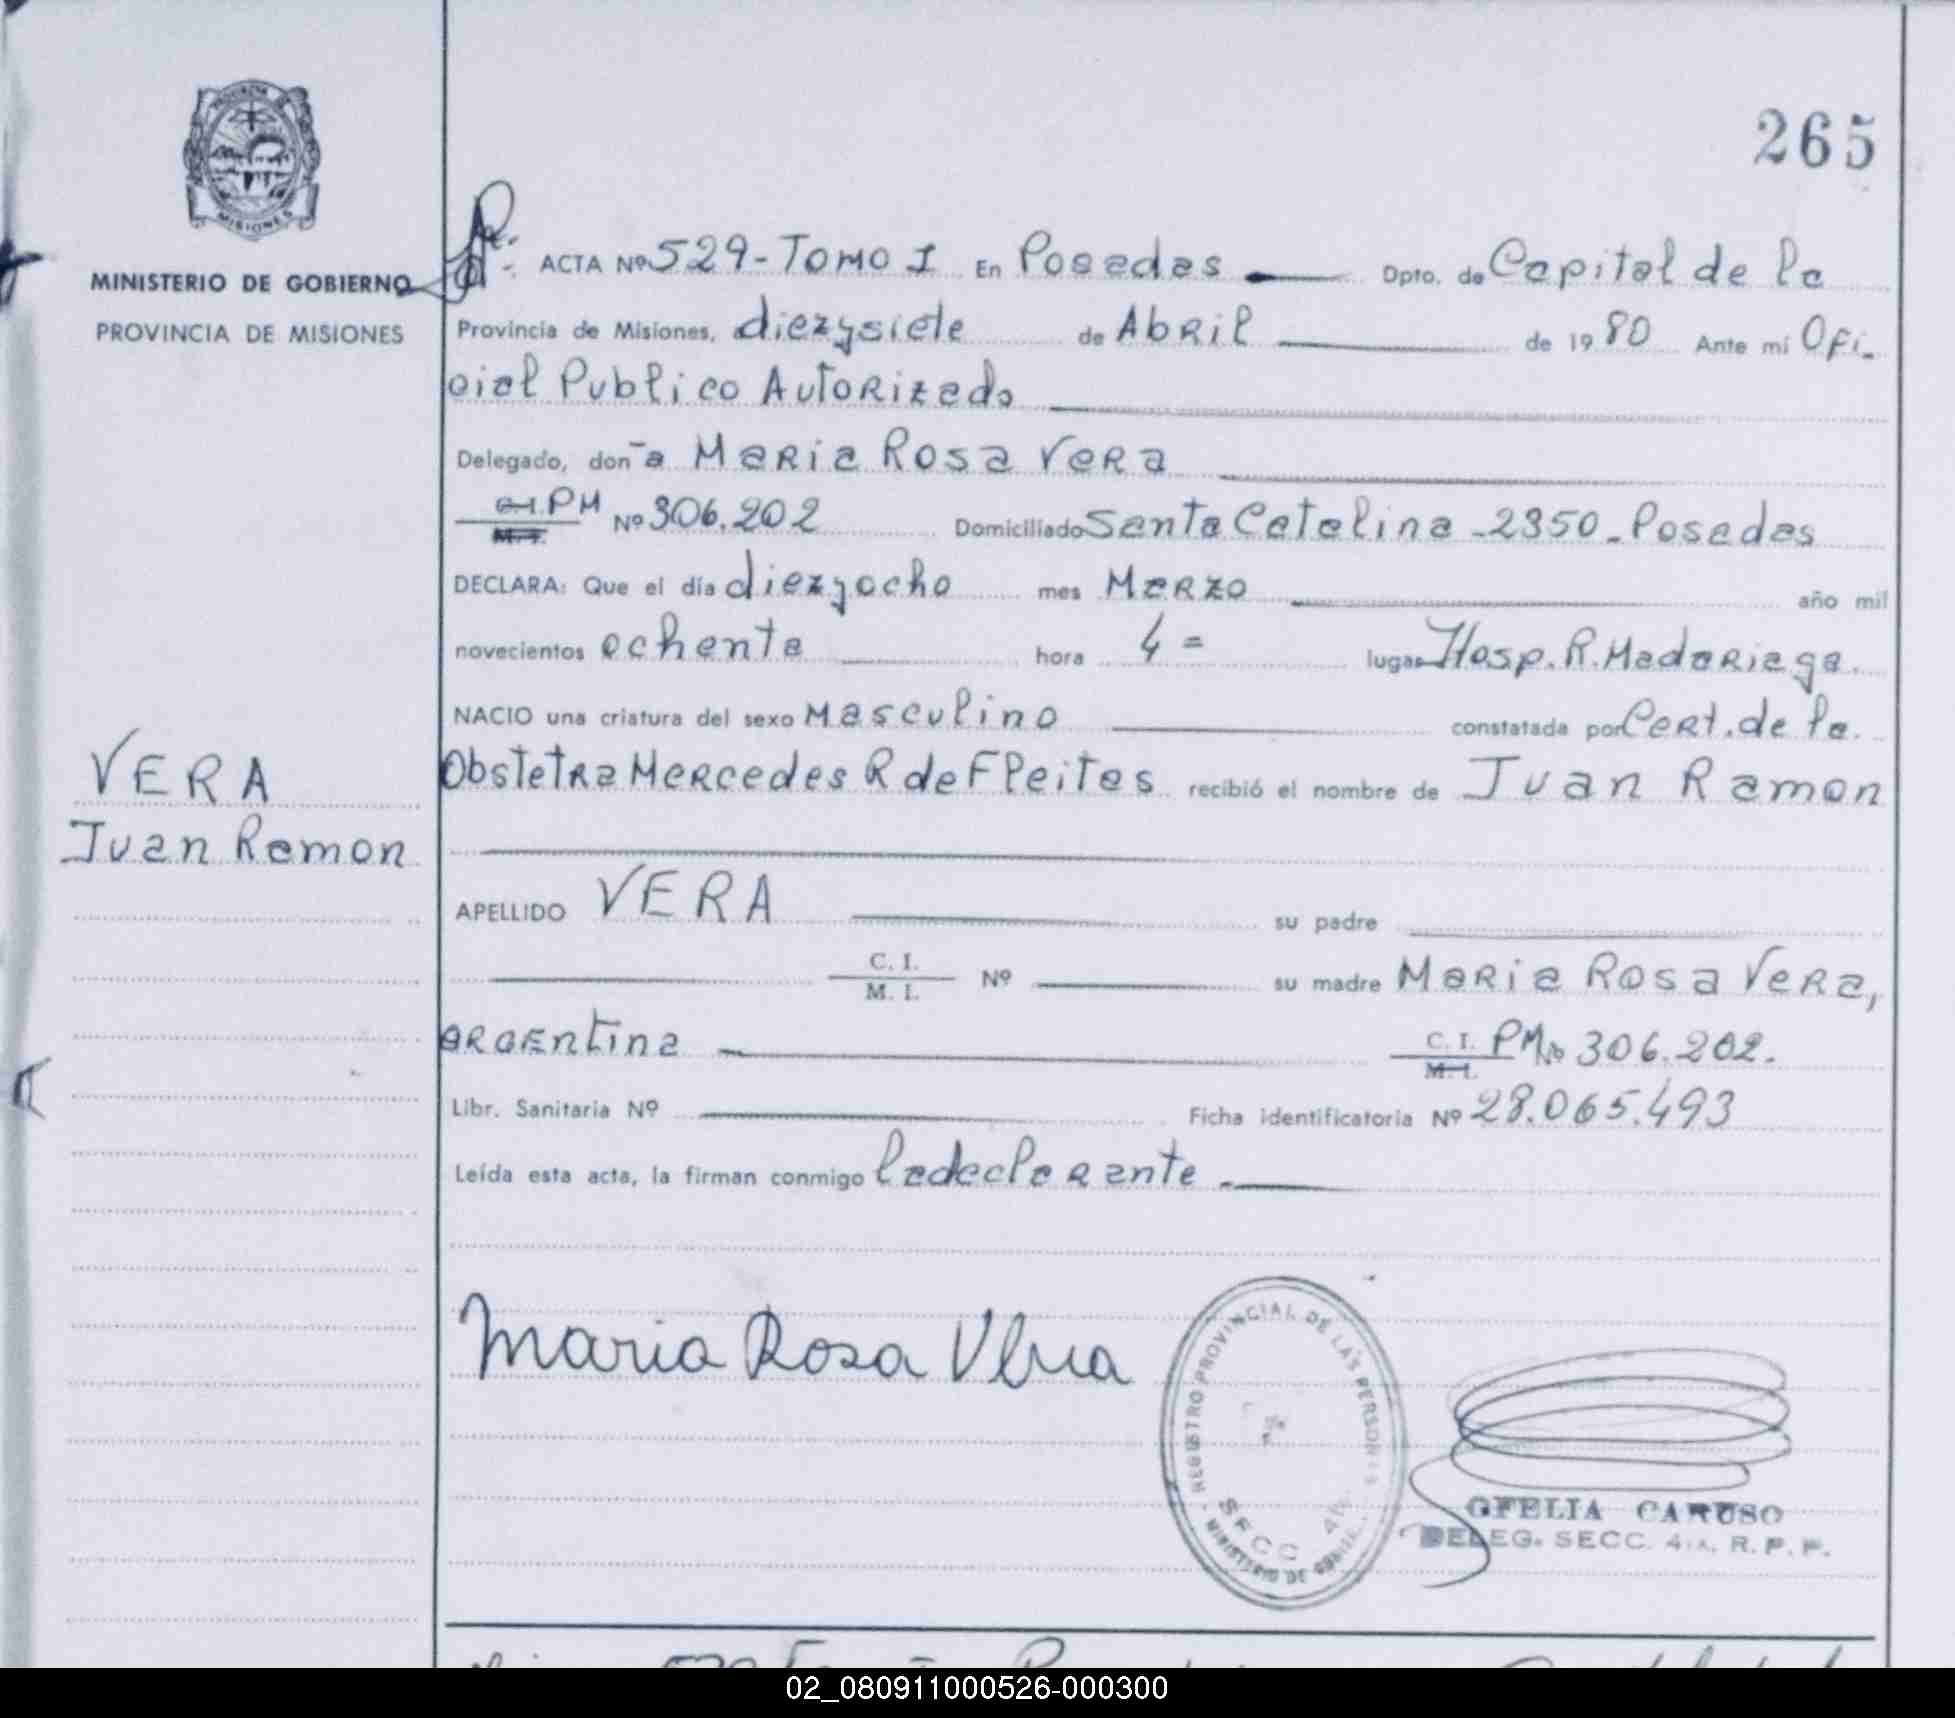 265
PROVINCIA DE
MISIONES
MINISTERIO DE GOBIERNO
PROVINCIA DE MISIONES
ACTA Nº 529-TOMO I En Posadas Dpto. de Capital de la
Provincia de Misiones, diezysiete de Abril de 1980 Ante mí Ofi-
cial Publico Autorizado
Delegado, don-a Maria Rosa Vera
C.I. PM
M. I. Nº 306.202 Domiciliado Santa Catalina -2350- Posadas
DECLARA: Que el día diezyocho mes Marzo año mil
novecientos ochenta hora 4= lugar Hosp. R. Madariaga.
NACIO una criatura del sexo Masculino constatada por Cert. de la.
Obstetra Mercedes R de Fleites recibió el nombre de Juan Ramon
VERA
Juan Ramon
APELLIDO VERA su padre
C. I.
M. I. Nº su madre Maria Rosa Vera,
ARGENtina C. I. PM Nº 306.202.
M. I.
Libr. Sanitaria Nº Ficha identificatoria Nº 28.065.493
Leída esta acta, la firman conmigo la declarante.
Maria Rosa Vera
REGISTRO PROVINCIAL DE LAS PERSONAS
SECC 4ta.
MINISTERIO DE GOBIERNO
OFELIA CARUSO
DELEG. SECC. 4ta. R. P. P.
02_080911000526-000300